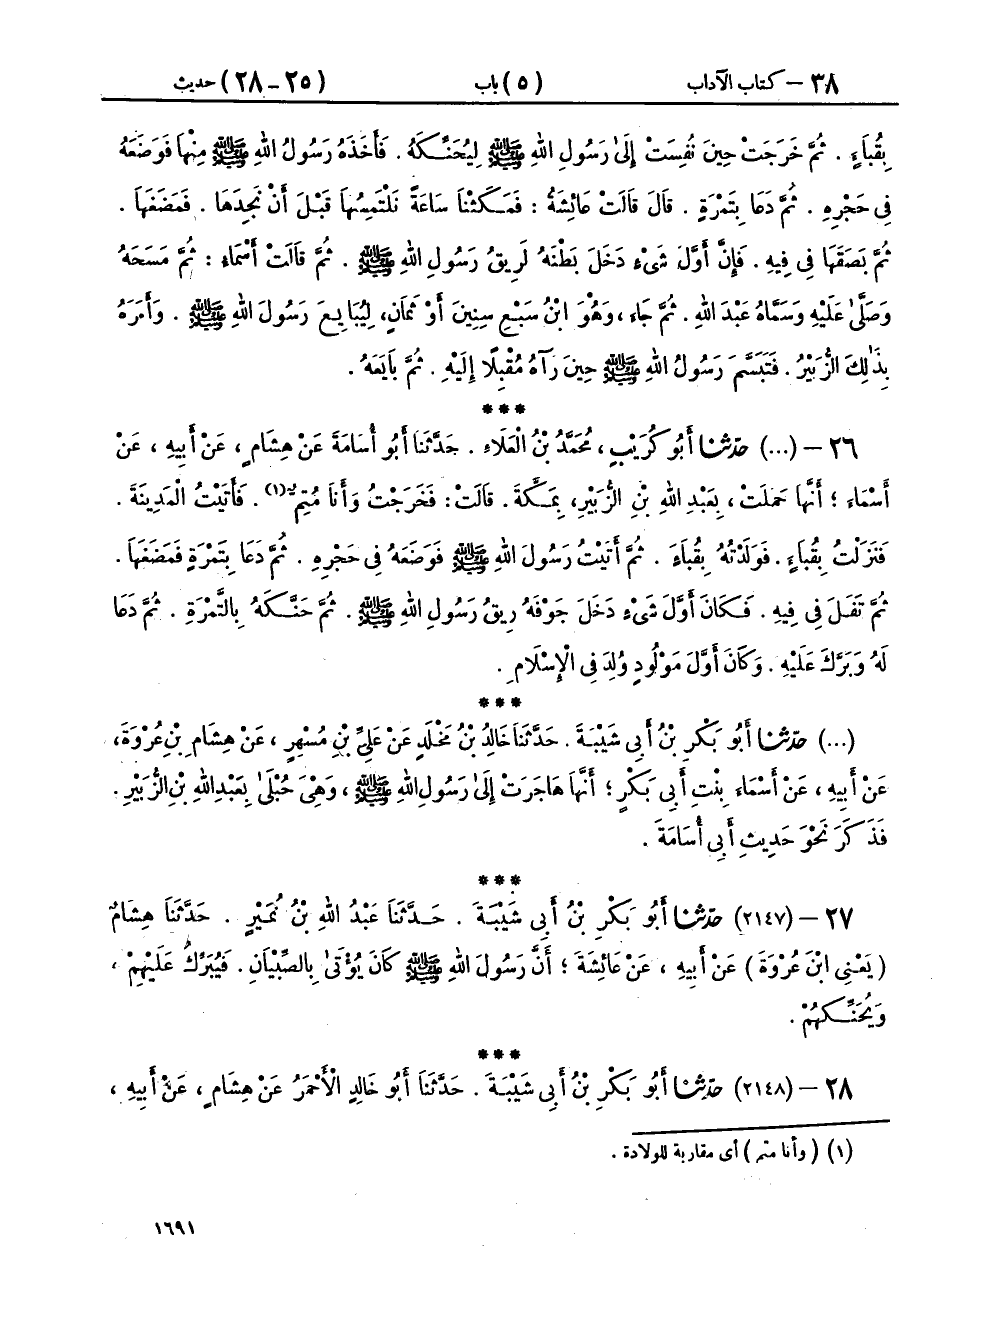 ٣٨ – كتاب الآداب (٥) باب (٢٥ – ٢٨) حديث
بِقُبَاءٍ . ثُمَّ خَرَجَتْ حِينَ نُفِسَتْ إِلَىٰ رَسُولِ اللهِ ﷺ لِيُحَنِّكَهُ . فَأَخَذَهُ رَسُولُ اللهِ ﷺ مِنْهَا فَوَضَعَهُ
فِى حَجْرِهِ . ثُمَّ دَعَا بِتَمْرَةٍ . قَالَ قَالَتْ عَائِشَةُ : فَمَكَثْنَا سَاعَةً نَلْتَمِسُهَا قَبْلَ أَنْ نَجِدَهَا . فَمَضَغَهَا .
ثُمَّ بَصَقَهَا فِى فِيهِ . فَإِنَّ أَوَّلَ شَىْءٍ دَخَلَ بَطْنَهُ لَرِيقُ رَسُولِ اللهِ ﷺ . ثُمَّ قَالَتْ أَسْمَاءُ : ثُمَّ مَسَحَهُ
وَصَلَّىٰ عَلَيْهِ وَسَمَّاهُ عَبْدَ اللهِ . ثُمَّ جَاءَ ، وَهُوَ ابْنُ سَبْعِ سِنِينَ أَوْ ثَمَانٍ، لِيُبَايِعَ رَسُولَ اللهِ ﷺ . وَأَمَرَهُ
بِذَٰلِكَ الزُّبَيْرُ . فَتَبَسَّمَ رَسُولُ اللهِ ﷺ حِينَ رَآهُ مُقْبِلًا إِلَيْهِ . ثُمَّ بَايَعَهُ .
***
٢٦ – (...) حَدَّثَنَا أَبُو كُرَيْبٍ ، مُحَمَّدُ بْنُ الْعَلَاءِ . حَدَّثَنَا أَبُو أُسَامَةَ عَنْ هِشَامٍ ، عَنْ أَبِيهِ ، عَنْ
أَسْمَاءَ ؛ أَنَّهَا حَمَلَتْ ، بِعَبْدِ اللهِ بْنِ الزُّبَيْرِ، بِمَكَّةَ . قَالَتْ : فَخَرَجْتُ وَأَنَا مُتِمٌّ(١) . فَأَتَيْتُ الْمَدِينَةَ .
فَنَزَلْتُ بِقُبَاءٍ . فَوَلَدْتُهُ بِقُبَاءَ . ثُمَّ أَتَيْتُ رَسُولَ اللهِ ﷺ فَوَضَعَهُ فِى حَجْرِهِ . ثُمَّ دَعَا بِتَمْرَةٍ فَمَضَغَهَا .
ثُمَّ تَفَلَ فِى فِيهِ . فَكَانَ أَوَّلَ شَىْءٍ دَخَلَ جَوْفَهُ رِيقُ رَسُولِ اللهِ ﷺ . ثُمَّ حَنَّكَهُ بِالتَّمْرَةِ . ثُمَّ دَعَا
لَهُ وَبَرَّكَ عَلَيْهِ . وَكَانَ أَوَّلَ مَوْلُودٍ وُلِدَ فِى الْإِسْلَامِ .
***
(...) حَدَّثَنَا أَبُو بَكْرِ بْنُ أَبِى شَيْبَةَ . حَدَّثَنَا خَالِدُ بْنُ مَخْلَدٍ عَنْ عَلِىِّ بْنِ مُسْهِرٍ ، عَنْ هِشَامِ بْنِ عُرْوَةَ،
عَنْ أَبِيهِ ، عَنْ أَسْمَاءَ بِنْتِ أَبِى بَكْرٍ ؛ أَنَّهَا هَاجَرَتْ إِلَىٰ رَسُولِ اللهِ ﷺ ، وَهْىَ حُبْلَىٰ بِعَبْدِ اللهِ بْنِ الزُّبَيْرِ .
فَذَكَرَ نَحْوَ حَدِيثِ أَبِى أُسَامَةَ .
***
٢٧ – (٢١٤٧) حَدَّثَنَا أَبُو بَكْرِ بْنُ أَبِى شَيْبَةَ . حَدَّثَنَا عَبْدُ اللهِ بْنُ نُمَيْرٍ . حَدَّثَنَا هِشَامٌ
( يَعْنِى ابْنَ عُرْوَةَ ) عَنْ أَبِيهِ ، عَنْ عَائِشَةَ ؛ أَنَّ رَسُولَ اللهِ ﷺ كَانَ يُؤْتَىٰ بِالصِّبْيَانِ . فَيُبَرِّكُ عَلَيْهِمْ ،
وَيُحَنِّكُهُمْ .
***
٢٨ – (٢١٤٨) حَدَّثَنَا أَبُو بَكْرِ بْنُ أَبِى شَيْبَةَ . حَدَّثَنَا أَبُو خَالِدٍ الْأَحْمَرُ عَنْ هِشَامٍ ، عَنْ أَبِيهِ ،
(١) ( وأنا متم ) أى مقاربة للولادة .
١٦٩١